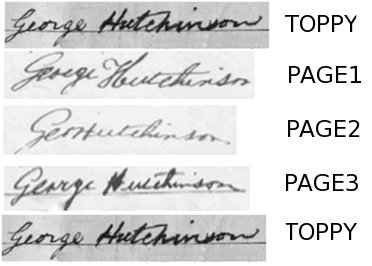 George Hutchinson TOPPY
George Hutchinson PAGE1
Geo Hutchinson PAGE2
George Hutchinson PAGE3
George Hutchinson TOPPY